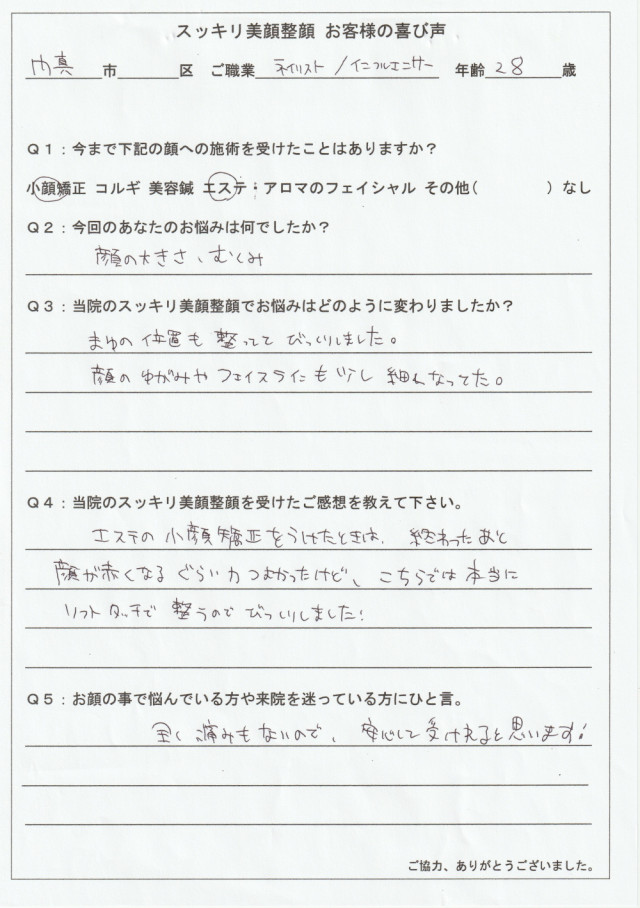 スッキリ美顔整顔 お客様の喜び声
門真 市 区 ご職業 ネイリスト/インフルエンサー 年齢 28 歳
Q1:今まで下記の顔への施術を受けたことはありますか?
小顔矯正 コルギ 美容鍼 エステ・アロマのフェイシャル その他( )なし
Q2:今回のあなたのお悩みは何でしたか?
顔の大きさ、むくみ
Q3:当院のスッキリ美顔整顔でお悩みはどのように変わりましたか?
まゆの位置も整ってて びっくりしました。
顔の ゆがみや フェイスラインも 少し 細くなってた。
Q4:当院のスッキリ美顔整顔を受けたご感想を教えて下さい。
エステの 小顔矯正をうけたときは、終わったあと
顔が赤くなる ぐらい 力 つよかったけど、こちらでは 本当に
ソフトタッチで 整うので びっくりしました!
Q5:お顔の事で悩んでいる方や来院を迷っている方にひと言。
全く 痛みもないので、安心して受けれると思います!
ご協力、ありがとうございました。